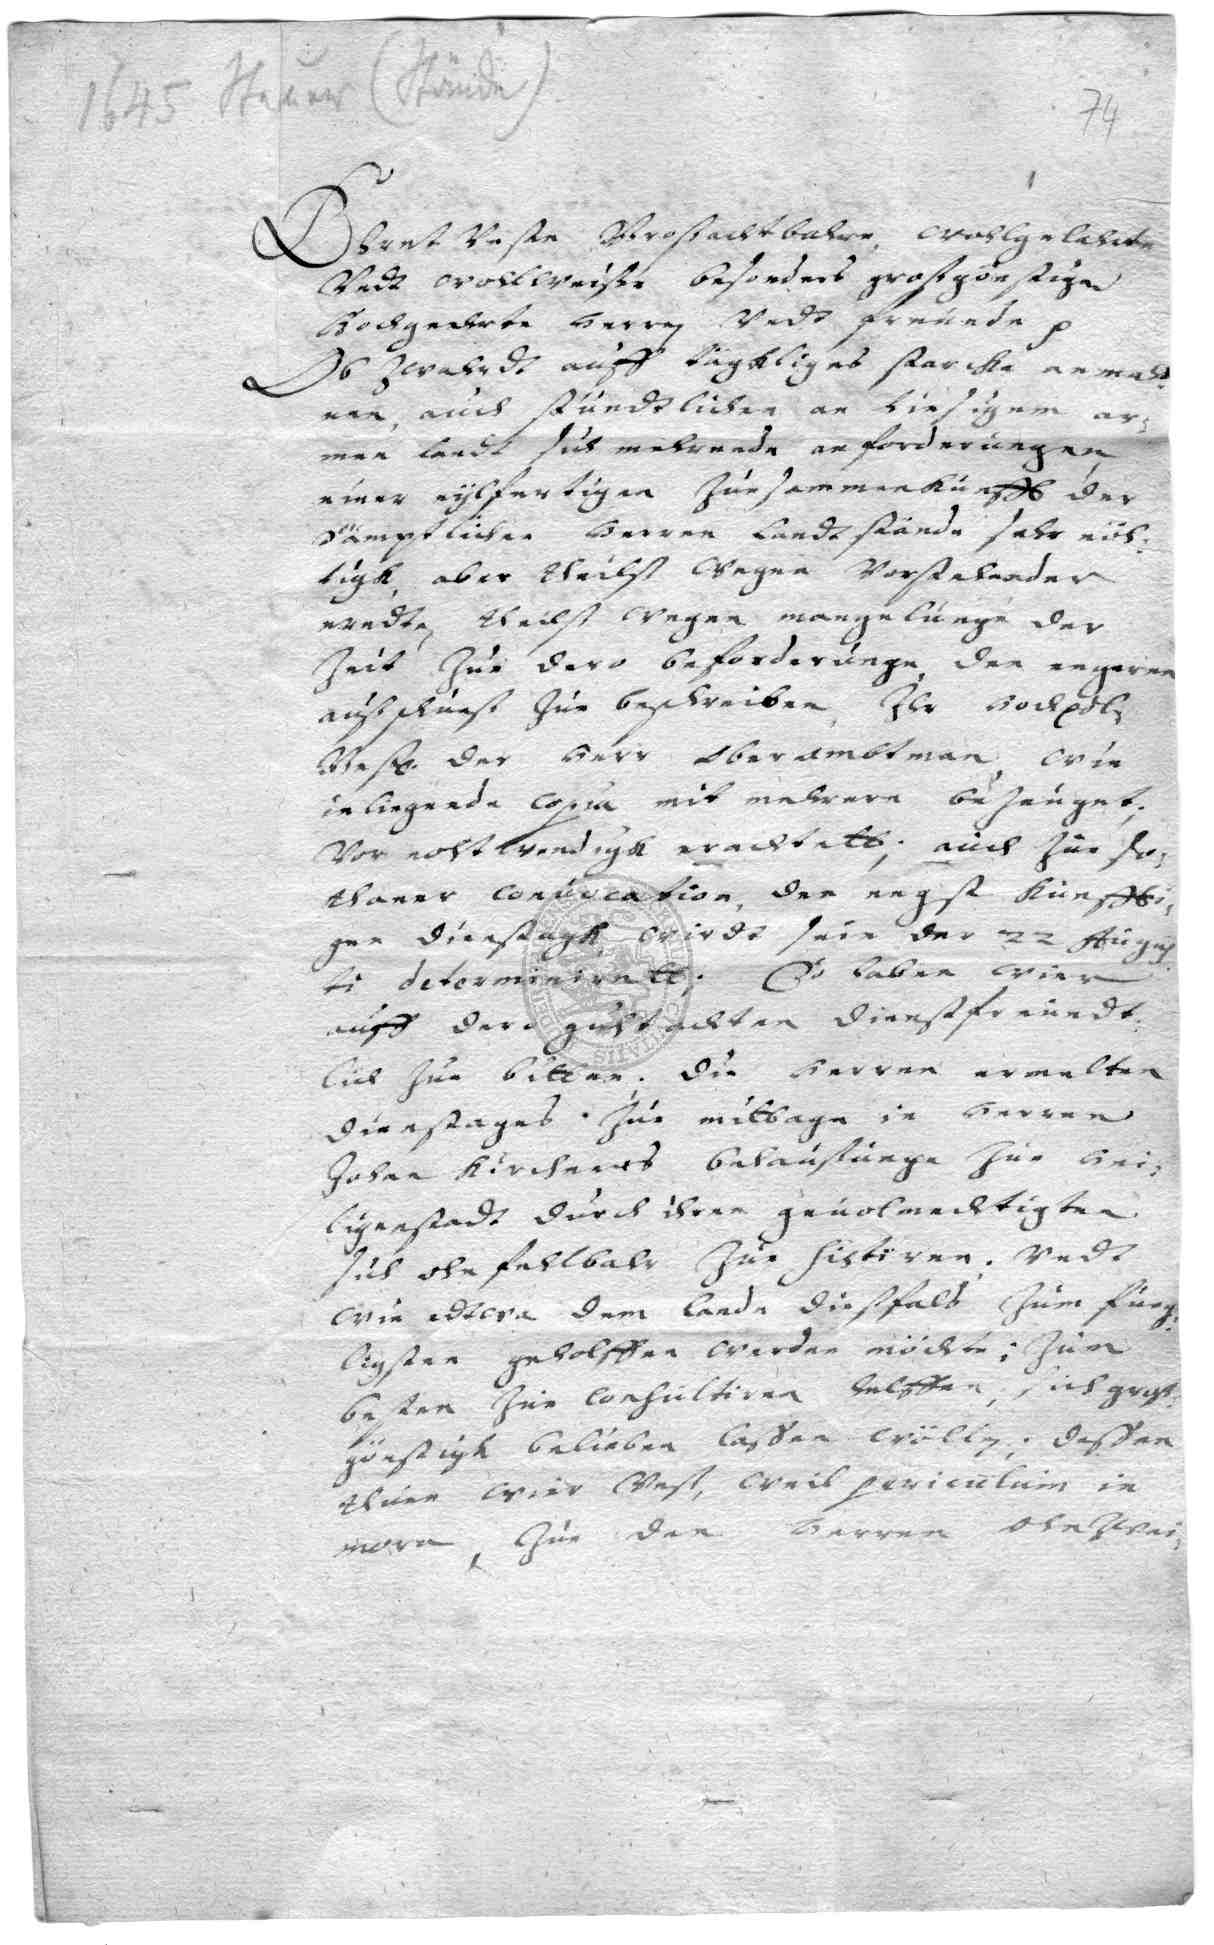 1645 Steuer (Stände)
74
Ehrnt Veste Großachtbahre, wohlgelahrte
Undt wollweise besonders großgönstige
Hochgeehrte Herrn Undt freunde p
Ob zwahrdt auff tägkliges starcke anmah
nen, auch stündtlichen an hiesigem ar:
men landt sich mehrende anforderungen
einer eylfertigen Zuesammenkunfft der
Sämptlichen Herren Landtstände sehr nöh:
tigk, aber theilß wegen Vorstehender
erndte, theilß wegen mangelunge der
Zeit Zue dero beforderunge, den engeren
außschueß Zue beschreiben, Ihr Hochedl.
Vest. der Herr Oberambtman, wie
inliegende Copia mit mehrern bezeuget,
Vor nohtwendigk erachtett, auch Zue so:
thaner convocation, den negst künffti:
gen dinstagk, wirdt sein der 22 Augus
ti determinirett; So haben wier
auff dero guhtachten dienstfreundt
lich Zue bitten, die Herren ermelten
dienstages Zue mittage in Herren
Johan Kirchners behausunge Zue Hei:
ligenstadt durch ihren gevolmechtigten
sich ohnfehlbahr Zue sistiren, Undt
wie edtwa dem lande dießfals Zum füeg
ligsten geholffen werden möchte, Zum
besten Zue consultiren helffen, sich groß
gönstigk belieben lassen wölln, dessen
thuen wier Unß, weil periculum in
mora, Zue den Herren ohnzwei: